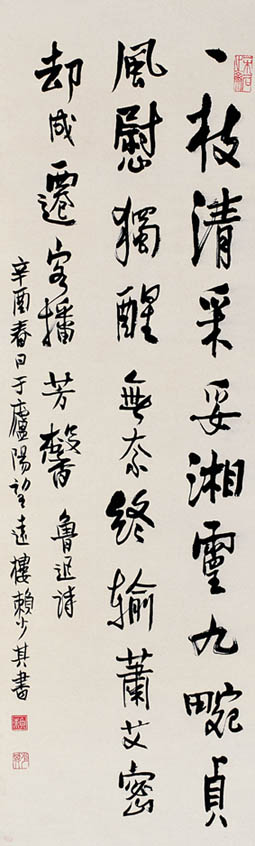 一枝清采妥湘靈九畹貞
風慰獨醒無奈終輸蕭艾密
却成遷客播芳馨 魯迅詩
辛酉春日于廬陽望遠樓賴少其書